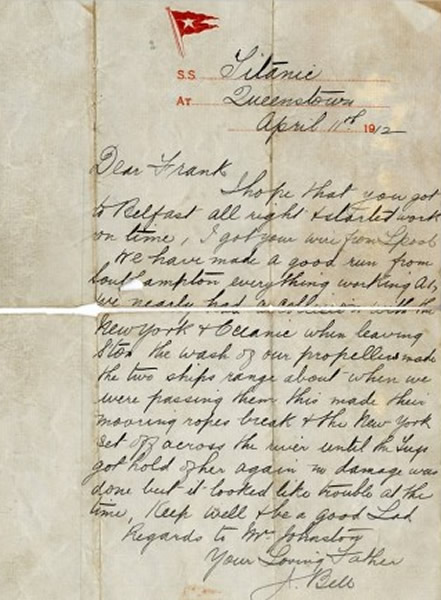 S.S. Titanic
AT Queenstown
April 11th 1912
Dear Frank
I hope that you got
to Belfast all right & started work
on time, I got your wire from Lpool
We have made a good run from
Southampton everything working A1,
we nearly had a collision with the
New York & Oceanic when leaving
Ston the wash of our propellers made
the two ships range about when we
were passing them this made their
mooring ropes break & the New York
set off across the river until the Tugs
got hold of her again no damage was
done but it looked like trouble at the
time, Keep well & be a good Lad
Regards to Mr Johnston
Your Loving Father
J. Bell